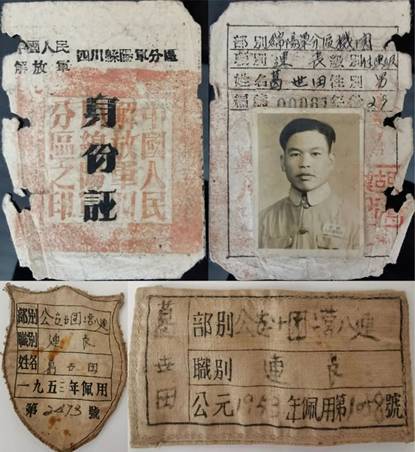 中國人民
解放軍
四川綿陽軍分區
身份証
中國人民
解放軍四川
綿陽軍
分區之印
部別 綿陽軍分區機關
職別 連長 級別
姓名 葛世田 性別 男
編號 00087 年齡 25
部別 公安十團二營八連
職別 連長
姓名 葛世田
一九五三年佩用
第2473號
葛世田
部別 公安十團二營八連
職別 連長
公元1953年佩用第1058號